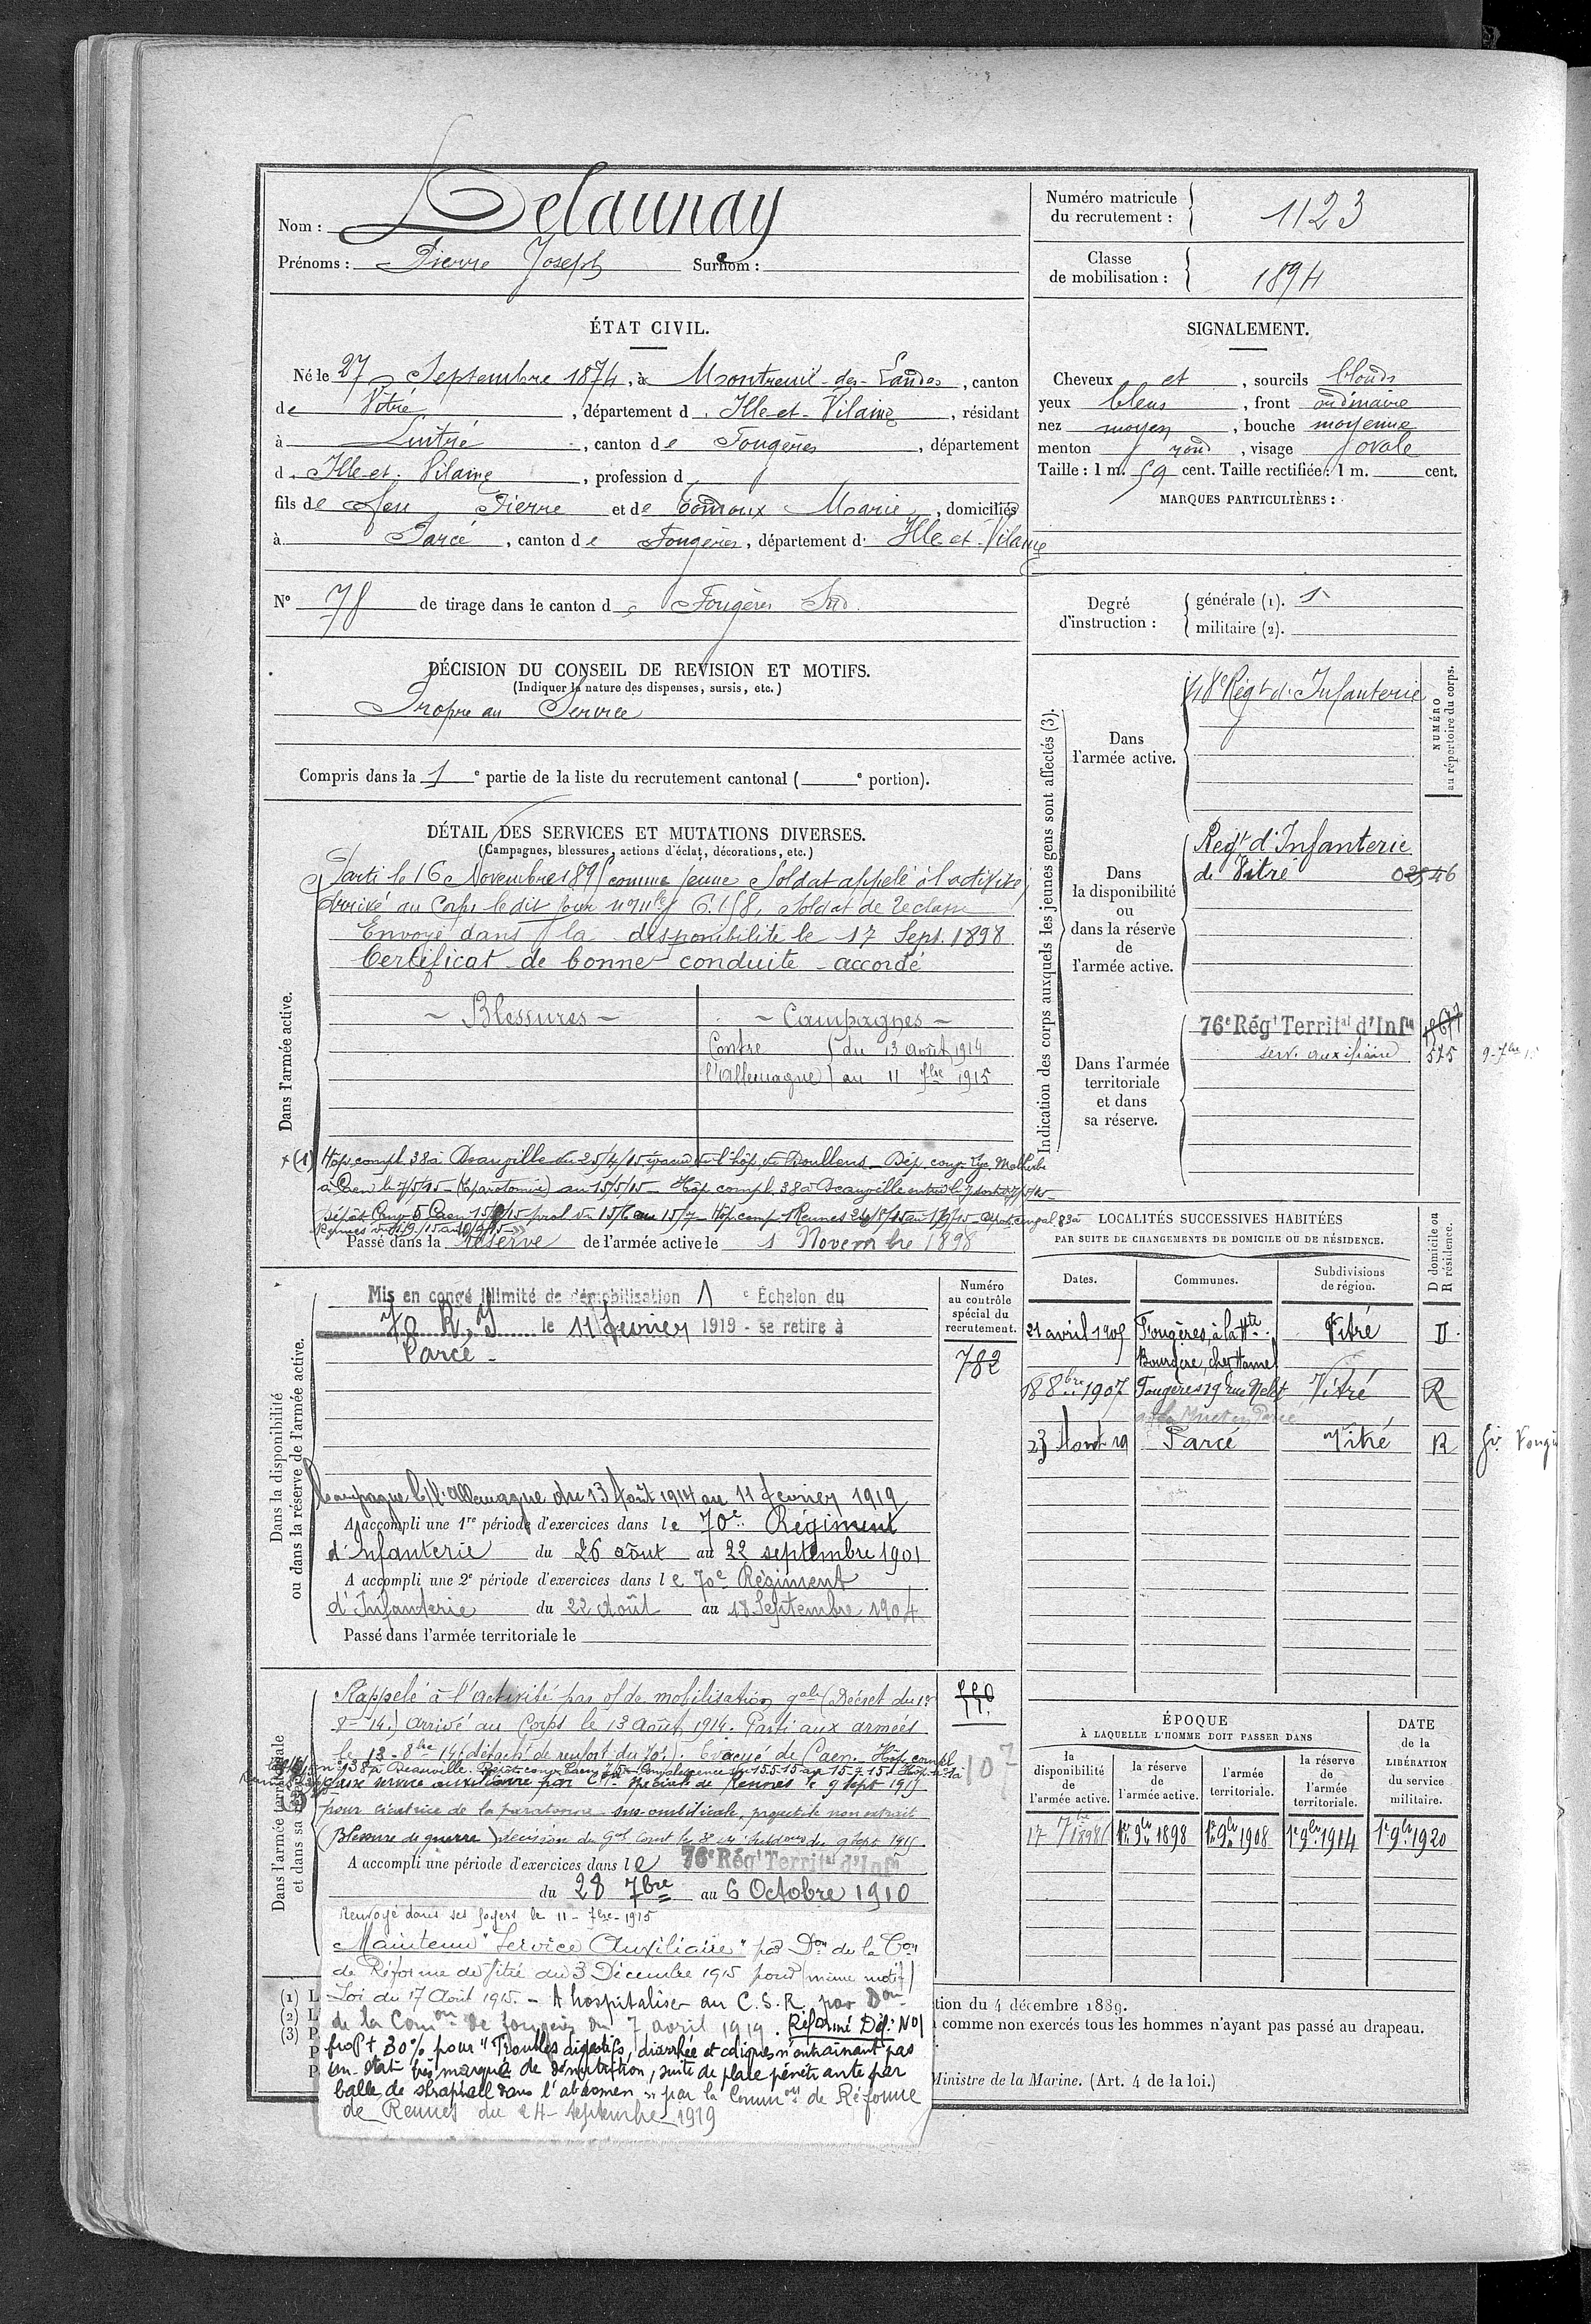 Nom : Delaunay
Prénoms : Pierre Joseph Surnom :
Numéro matricule
du recrutement : 1123
Classe
de mobilisation : 1894
ÉTAT CIVIL.
Né le 27 Septembre 1874, à Montreuil-des-Landes, canton
de Vitré, département d. Ille-et-Vilaine, résidant
à Luitré, canton de Fougères, département
d. Ille-et-Vilaine, profession d
fils de feu Pierre et de Marie, domiciliés
à Parcé, canton de Fougères, département d. Ille-et-Vilaine
N° 78 de tirage dans le canton de Fougères Sud
SIGNALEMENT.
Cheveux et, sourcils blonds
yeux bleus, front ordinaire
nez moyen, bouche moyenne
menton rond, visage ovale
Taille : 1 m. 59 cent. Taille rectifiée : 1 m. cent.
MARQUES PARTICULIÈRES :
Degré
d'instruction :
générale (1). 1
militaire (2).
DÉCISION DU CONSEIL DE REVISION ET MOTIFS.
(Indiquer la nature des dispenses, sursis, etc.)
Propre au Service
Compris dans la 1 e partie de la liste du recrutement cantonal ( e portion).
DÉTAIL DES SERVICES ET MUTATIONS DIVERSES.
(Campagnes, blessures, actions d'éclat, décorations, etc.)
Dans l'armée active.
Parti le 16 Novembre 1895 comme jeune Soldat appelé à l'activité,
Arrivé au Corps le dit jour Soldat de 2e classe
Envoyé dans la disponibilité le 17 Sept. 1898
Certificat de bonne conduite accordé
- Blessures - - Campagnes -
Contre du 13 août 1914
l'Allemagne au 11 7bre 1915
(1) Hôp. compl. 38 à Deauville du 25/4/15 évacué de l'hôp. de Doullens - Dép. conv. Lyc. Malherbe
à Caen le 7/5/15 - (Laparotomie) au 15/5/15 - Hôp compl. 38 à Deauville
Passé dans la réserve de l'armée active le 1 Novembre 1898
Indication des corps auxquels les jeunes gens sont affectés (3).
NUMÉRO
au répertoire du corps.
Dans
l'armée active.
48e Régt d'Infanterie
Dans
la disponibilité
ou
dans la réserve
de
l'armée active.
Régt d'Infanterie
de Vitré
Dans l'armée
territoriale
et dans
sa réserve.
76e Régt Territal d'Infie
serv. auxiliaire 525
Dans la disponibilité
ou dans la réserve de l'armée active.
Mis en congé illimité de démobilisation 1 e Échelon du
70 R.I le 11 février 1919 - se retire à
Parcé -
Numéro
au contrôle
spécial du
recrutement.
782
Campagne c/l'Allemagne du 13 Août 1914 au 11 février 1919
A accompli une 1re période d'exercices dans le 70e Régiment
d'Infanterie du 26 août au 22 septembre 1901
A accompli une 2e période d'exercices dans le 70e Régiment
d'Infanterie du 22 Août au 18 Septembre 1904
Passé dans l'armée territoriale le
LOCALITÉS SUCCESSIVES HABITÉES
PAR SUITE DE CHANGEMENTS DE DOMICILE OU DE RÉSIDENCE.
Dates. Communes. Subdivisions
de région. D domicile ou
R résidence.
21 avril 1905 Fougères, à la Hte Vitré D.
Bourdère, chez Hamel
18 8bre 1907 Fougères 19 rue Vitré R
23 Août 19 Parcé Vitré R
Dans l'armée territoriale
et dans sa réserve
Rappelé à l'activité par o/ de mobilisation gale (Décret du 1er
8-14.) Arrivé au Corps le 13 août 1914. Parti aux armées
le 13-8bre 14 (détacht de renfort du 70e). Evacué de Caen. Hôp. compl.
n° 38 à Deauville.
Classé service auxiliaire par Con Spéciale de Rennes le 9 Sept 1915
pour cicatrice de laparotomie sus-ombilicale, projectile non extrait
(Blessure de guerre) décision du Gal Comt
A accompli une période d'exercices dans le 76e Régt Territal d'Infie
du 28 7bre au 6 Octobre 1910
Renvoyé dans ses foyers le 11-7bre-1915
Maintenu "Service Auxiliaire" par Don de la Con
de Réforme de Vitré du 3 Décembre 1915 pour (même motif)
Loi du 17 Août 1915. - A hospitaliser au C.S.R. par Don
de la Comon de Fougères du 7 avril 1919. Réformé Déf. N°1
propt 30% pour "Troubles digestifs, diarrhée et coliques n'entrainant pas
un état très marqué de dénutrition, suite de plaie pénétrante par
balle de shrapnell dans l'abdomen " par la Common de Réforme
de Rennes du 24 septembre 1919
ÉPOQUE
À LAQUELLE L'HOMME DOIT PASSER DANS
DATE
de la
LIBÉRATION
du service
militaire.
la
disponibilité
de
l'armée active.
la réserve
de
l'armée active.
l'armée
territoriale.
la réserve
de
l'armée
territoriale.
17 7bre 1898 1er 9bre 1898 1er 9bre 1908 1er 9bre 1914 1er 9bre 1920
(1) L
(2) L
(3) P
tion du 4 décembre 1889.
comme non exercés tous les hommes n'ayant pas passé au drapeau.
Ministre de la Marine. (Art. 4 de la loi.)